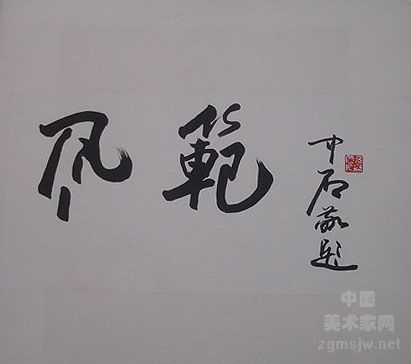 風範
中石敬题
中国
美术家网
zgmsjw.net